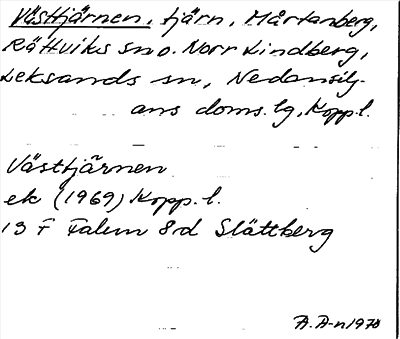 Västtjärnen, tjärn, Mårtanberg,
Rättviks sn o. Norr Lindberg,
Leksands sn, Nedansilj-
ans doms. lg, Kopp. l.
Västtjärnen
ek (1969) Kopp. l.
13 F Falun 8d Slättberg
A. A-n 1978